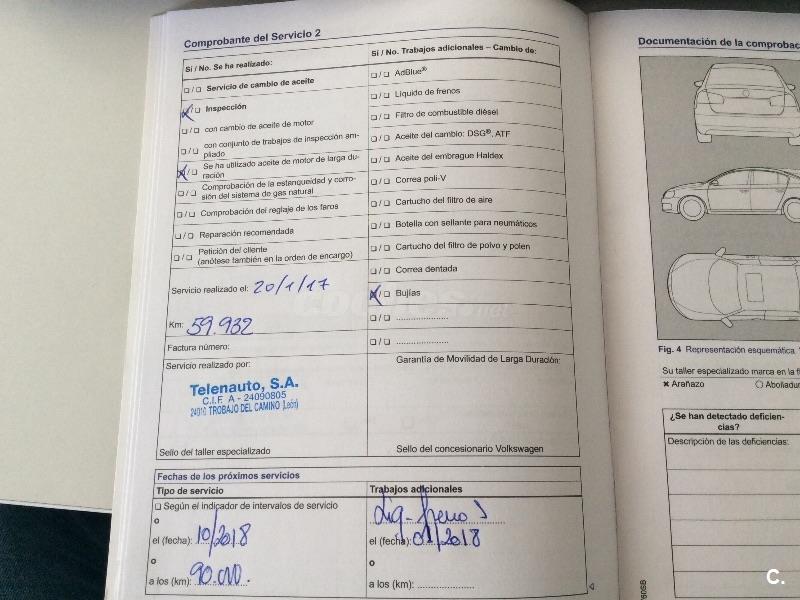 Comprobante del Servicio 2
Sí / No. Se ha realizado:
❏ / ❏ Servicio de cambio de aceite
x / ❏ Inspección
❏ / ❏ con cambio de aceite de motor
❏ / ❏ con conjunto de trabajos de inspección am-
pliado
x / ❏ Se ha utilizado aceite de motor de larga du-
ración
❏ / ❏ Comprobación de la estanqueidad y corro-
sión del sistema de gas natural
❏ / ❏ Comprobación del reglaje de los faros
❏ / ❏ Reparación recomendada
❏ / ❏ Petición del cliente
(anótese también en la orden de encargo)
Servicio realizado el: 20/1/17
Km: 59.932
Factura número:
Servicio realizado por:
Telenauto, S.A.
C.I.F. A - 24090805
24010 TROBAJO DEL CAMINO (León)
Sello del taller especializado
Sí / No. Trabajos adicionales – Cambio de:
❏ / ❏ AdBlue®
❏ / ❏ Líquido de frenos
❏ / ❏ Filtro de combustible diésel
❏ / ❏ Aceite del cambio: DSG®, ATF
❏ / ❏ Aceite del embrague Haldex
❏ / ❏ Correa poli-V
❏ / ❏ Cartucho del filtro de aire
❏ / ❏ Botella con sellante para neumáticos
❏ / ❏ Cartucho del filtro de polvo y polen
❏ / ❏ Correa dentada
x / ❏ Bujías
❏ / ❏ .....................
❏ / ❏ .....................
Garantía de Movilidad de Larga Duración:
Sello del concesionario Volkswagen
Fechas de los próximos servicios
Tipo de servicio
❏ Según el indicador de intervalos de servicio
o
el (fecha): 10/2018
o
a los (km): 90.000.
Trabajos adicionales
Liq. frenos
el (fecha): 01/2018
o
a los (km): ..................
Documentación de la comprobac
Fig. 4 Representación esquemática.
Su taller especializado marca en la f
✖ Arañazo ○ Abolladu
¿Se han detectado deficien-
cias?
Descripción de las deficiencias:
C.